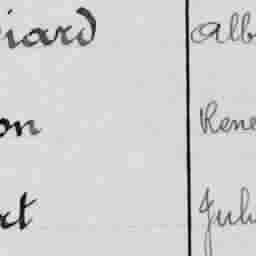 iard Alb
on Rene
rt Juli